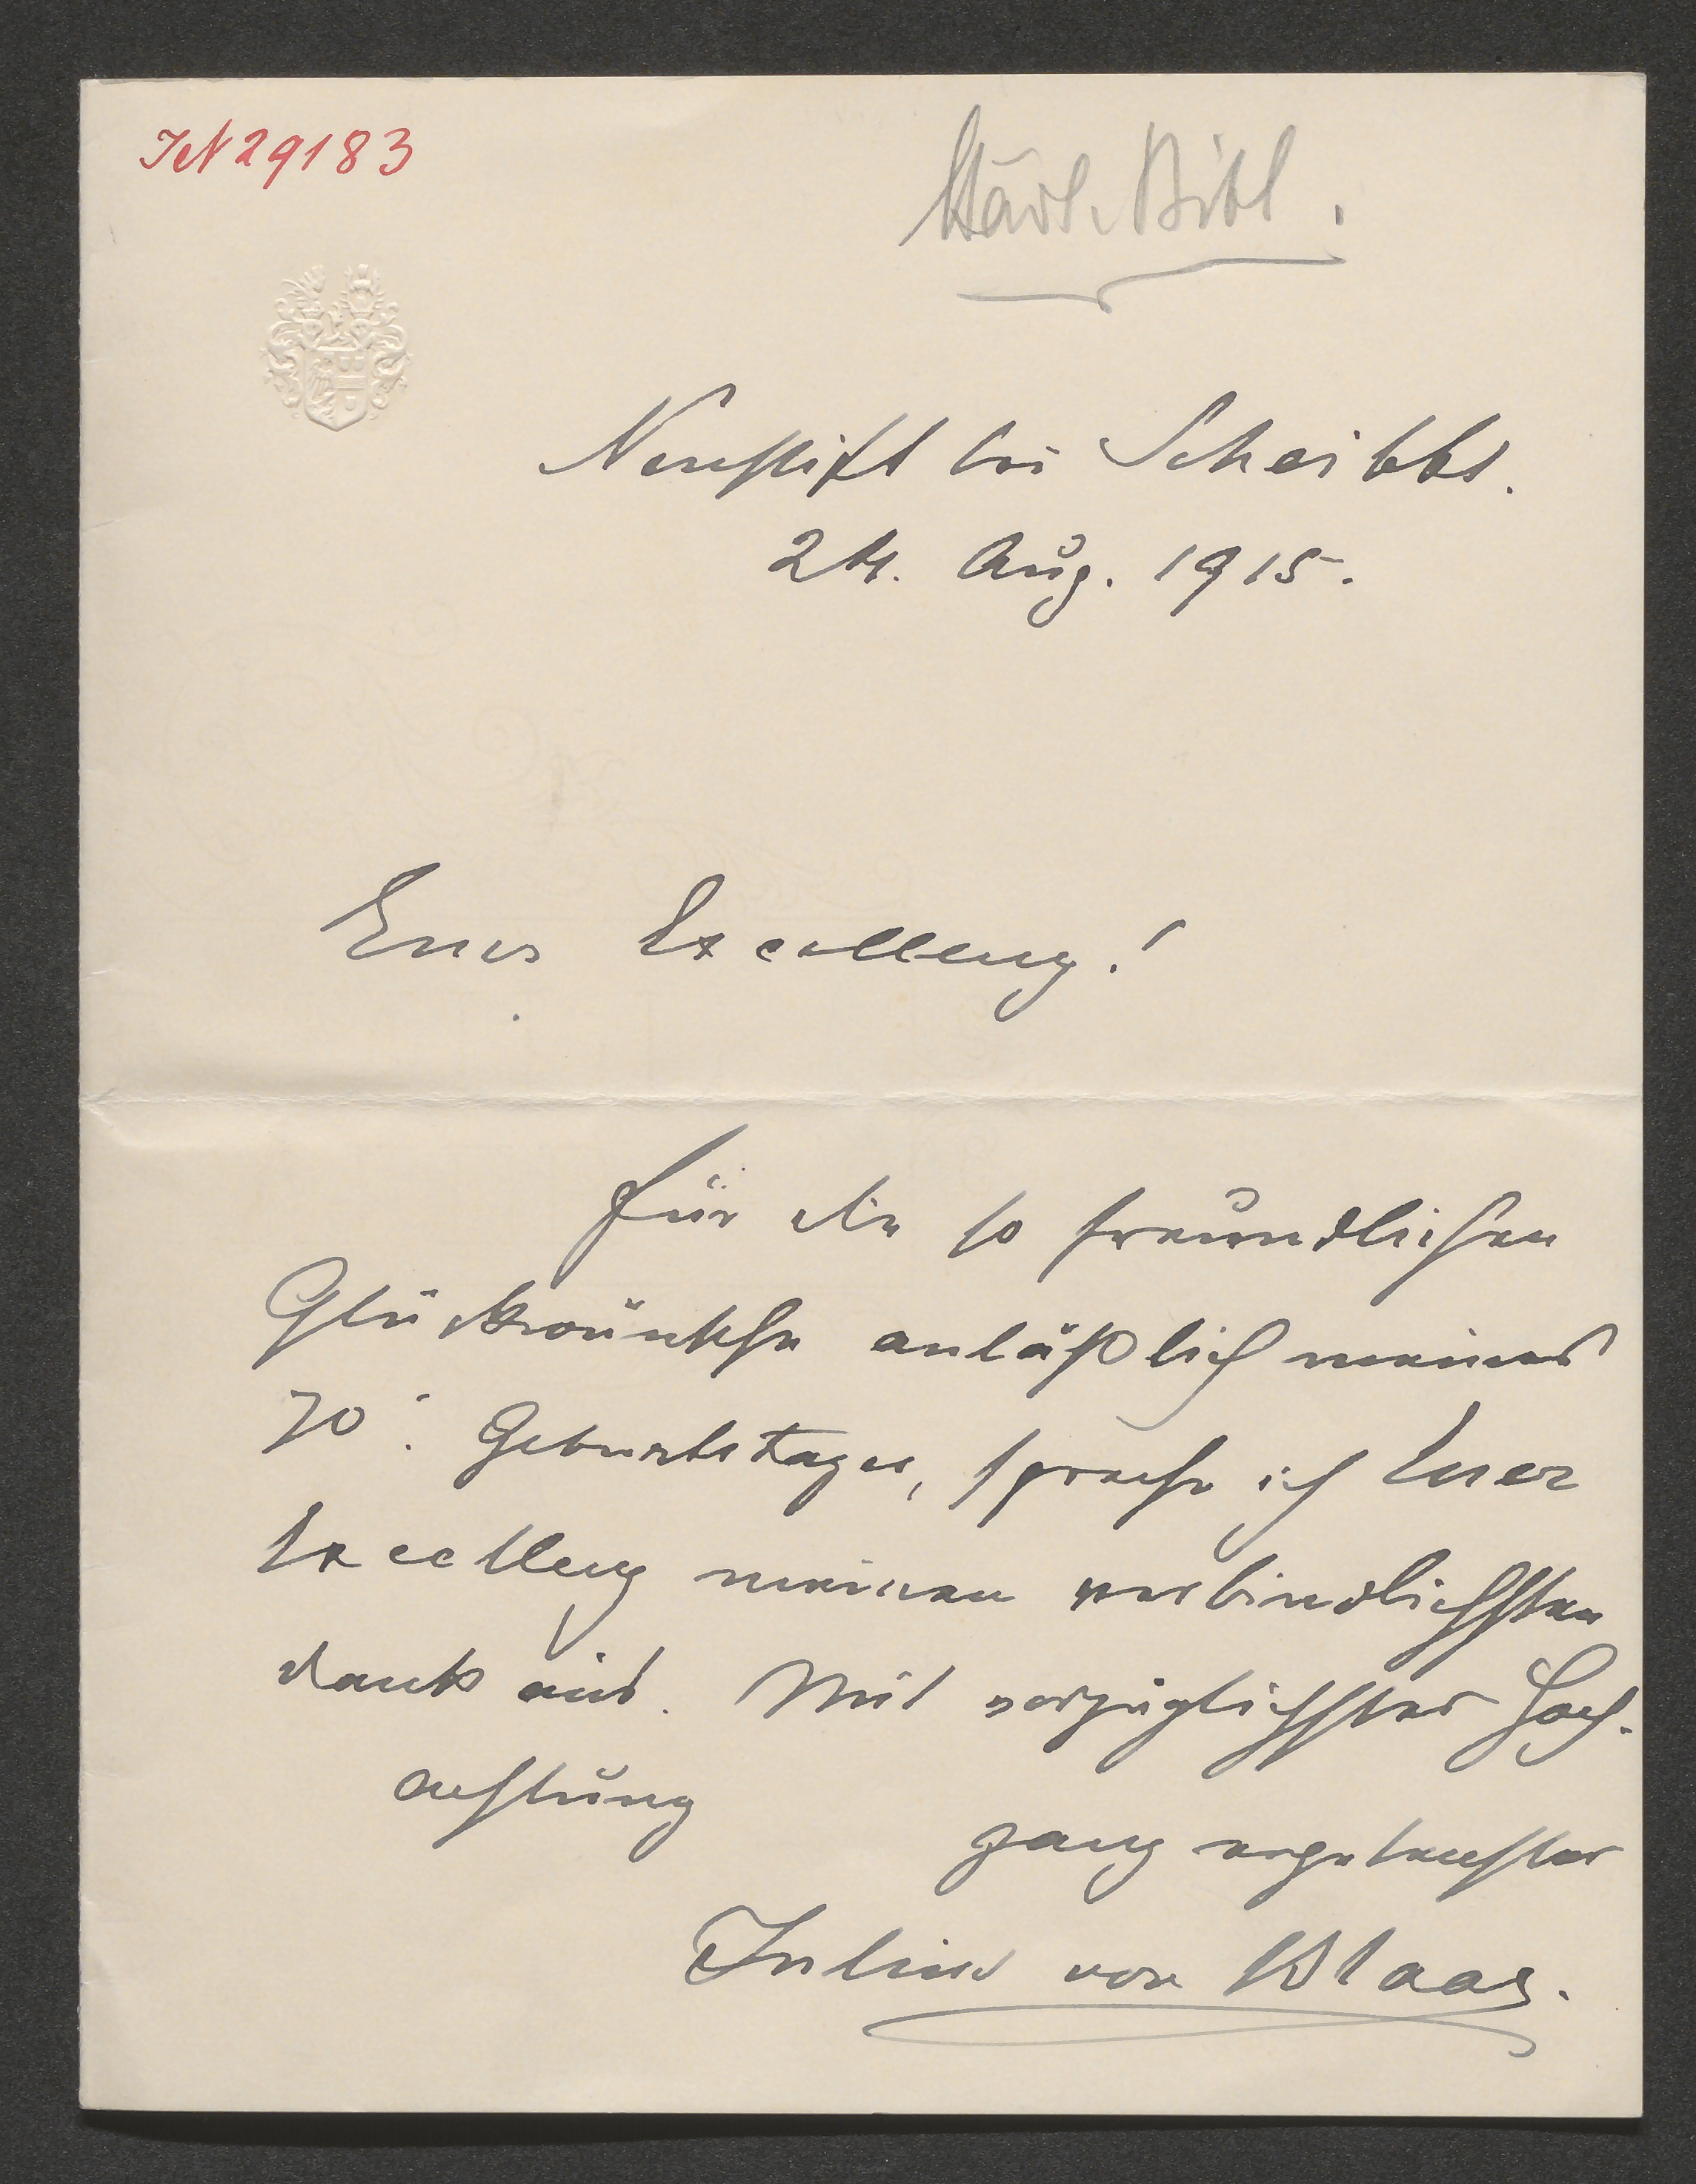 IN 29183
Städt. Bibl.
Neustift bei Scheibbs.
24. Aug. 1915.
Euer Excellenz!
Für die so freundlichen
Glückwünsche anläßlich meines
70. Geburtstages, spreche ich Euer
Excellenz meinen verbindlichsten
Dank aus. Mit vorzüglichster Hoch-
achtung
ganz ergebenster
Julius von Blaas.